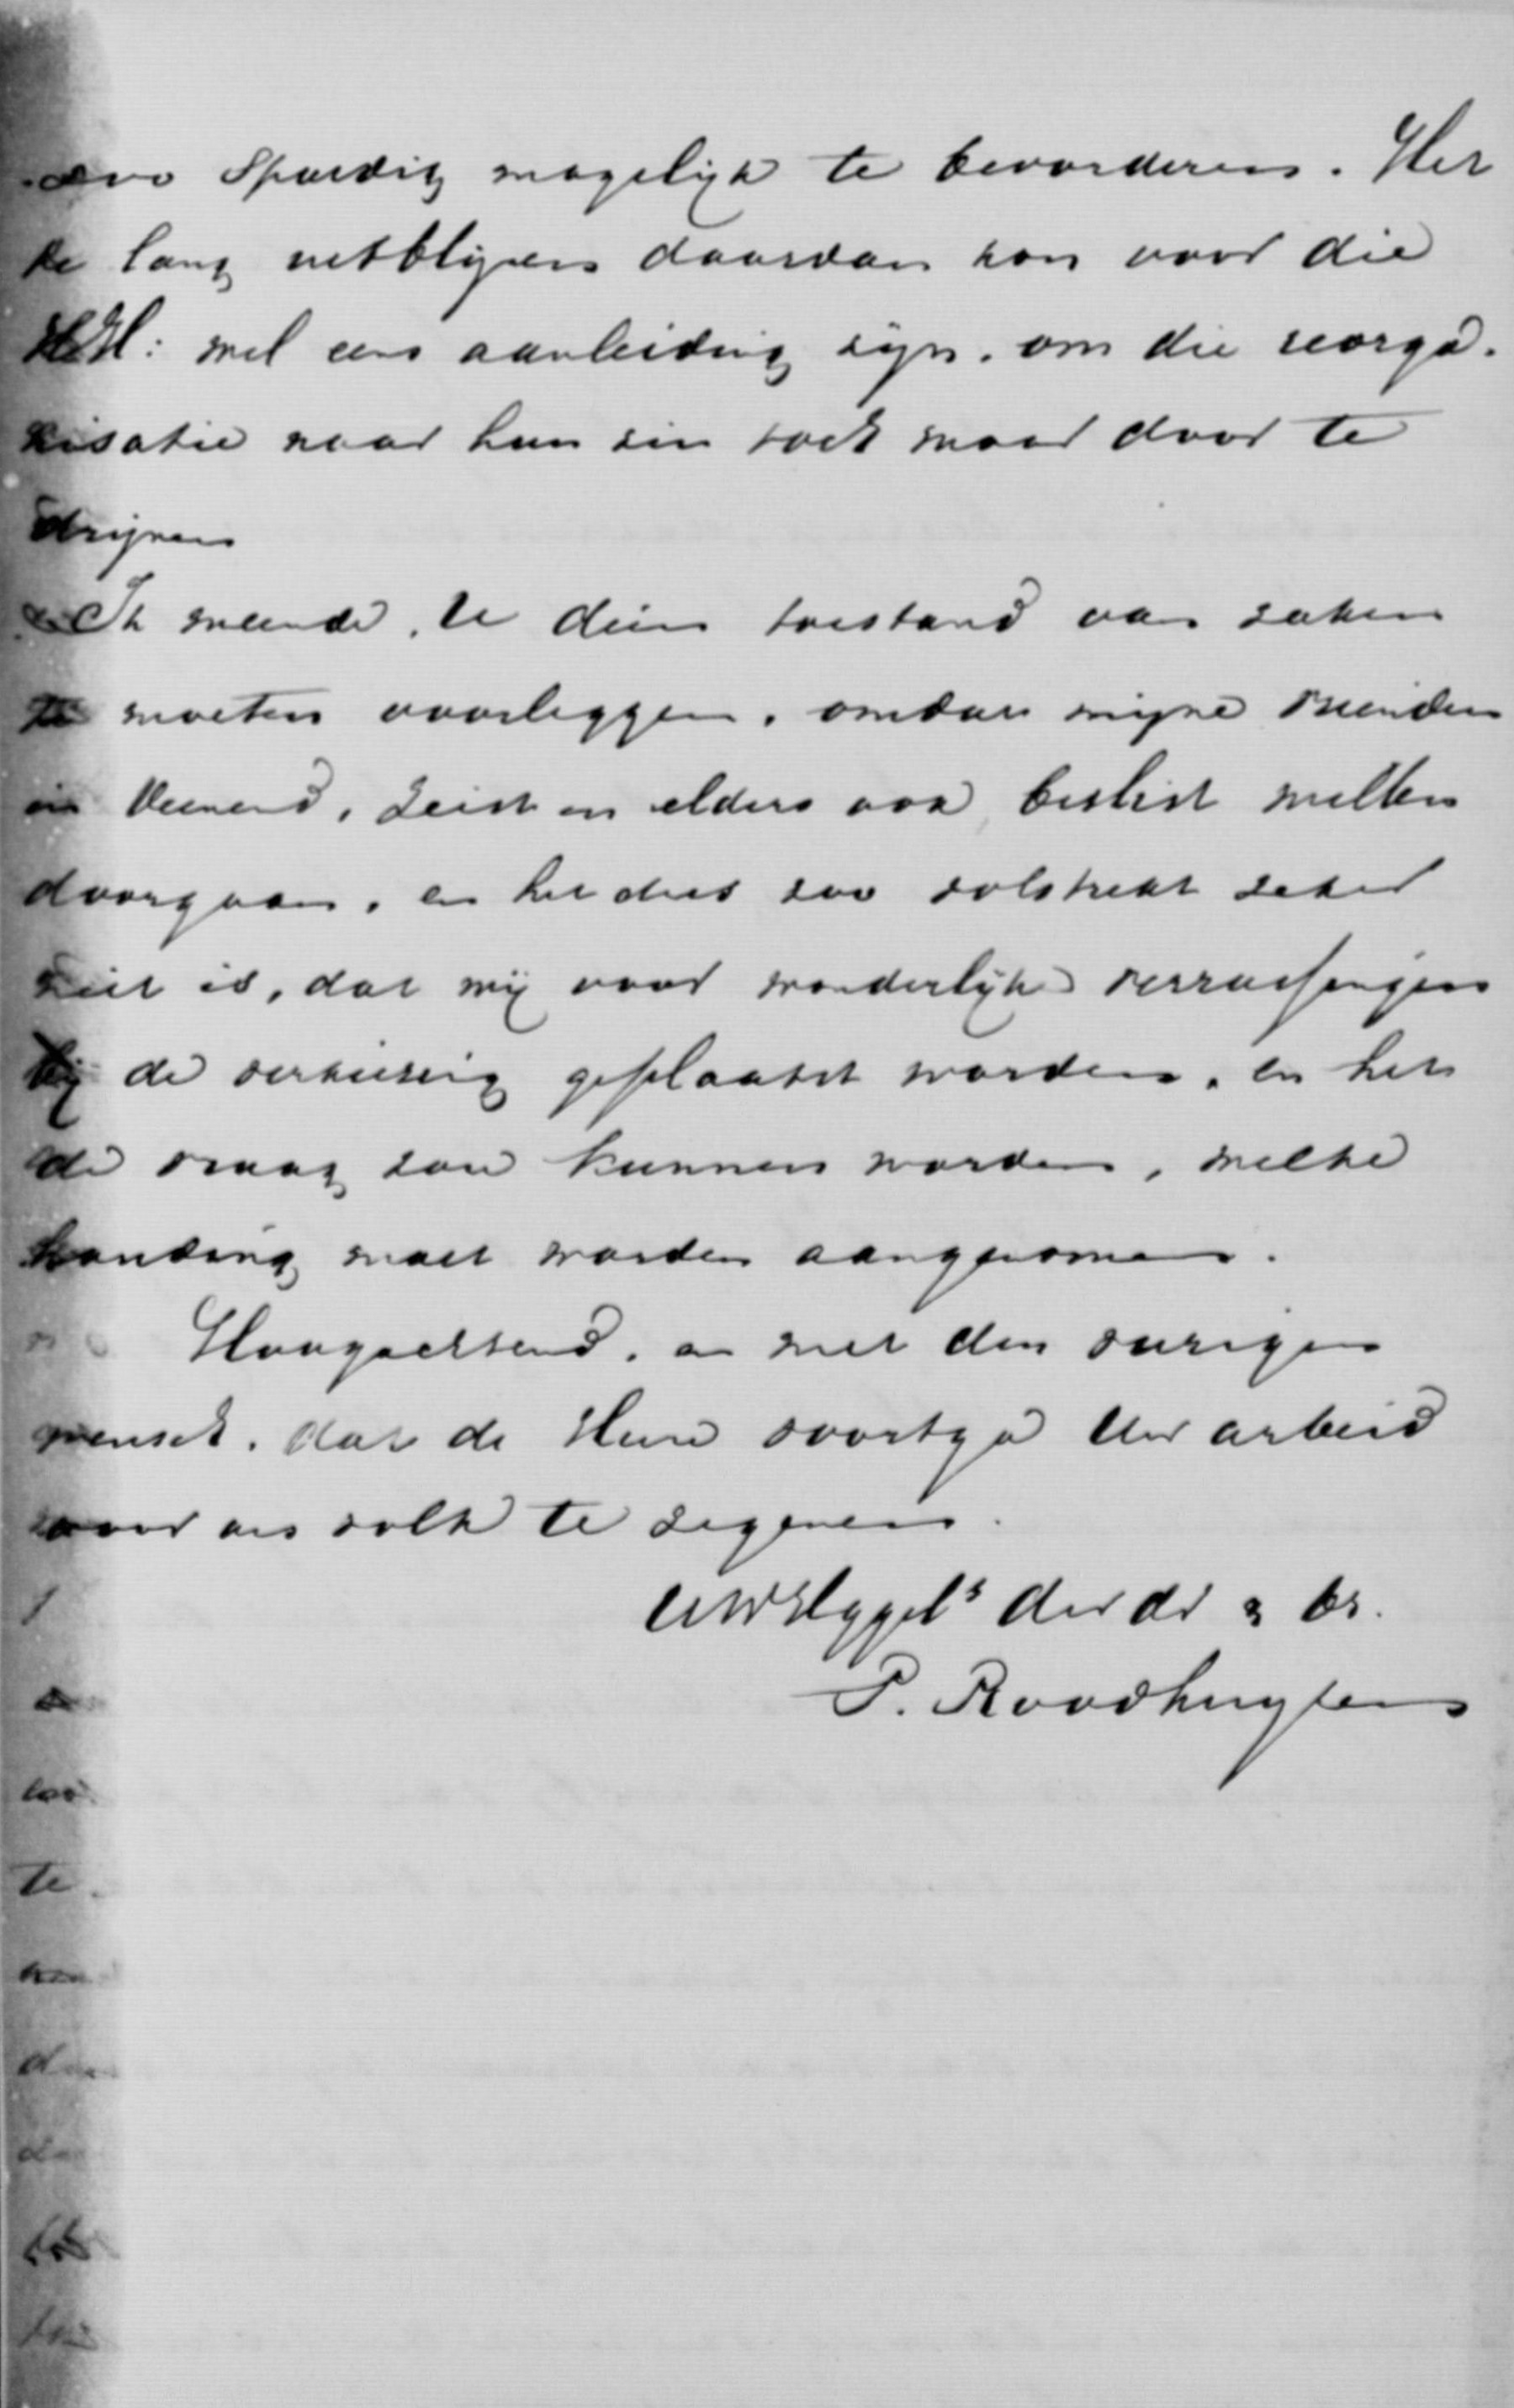 zoo spoedig mogelijk te bevorderen. Het
te lang uitblijven daarvan kon voor die
HH: wel eens aanleiding zijn, om die reorga-
nisatie naar hun zin toch maar door te
drijven
Ik meende, U dien toestand van zaken
te moeten voorleggen, omdat mijne vrienden
in Veenend, Zeist en elders ook beslist willen
doorgaan, en het dus zoo volstrekt zeker
niet is, dat wij voor wonderlijke verrassingen
bij de verkiezing geplaatst worden, en het
de vraag zou kunnen worden, welke
houding moet worden aangenomen.
Hoogachtend, en met den vurigen
wensch, dat de Heere voortga Uw arbeid
voor ons volk te zegenen.
UWEdgeb's dw dr & br.
P. Roodhuyzen
te